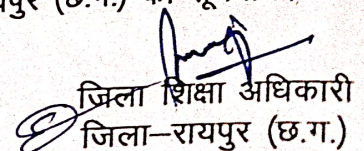 (छ.ग.)
जिला शिक्षा अधिकारी
जिला–रायपुर (छ.ग.)